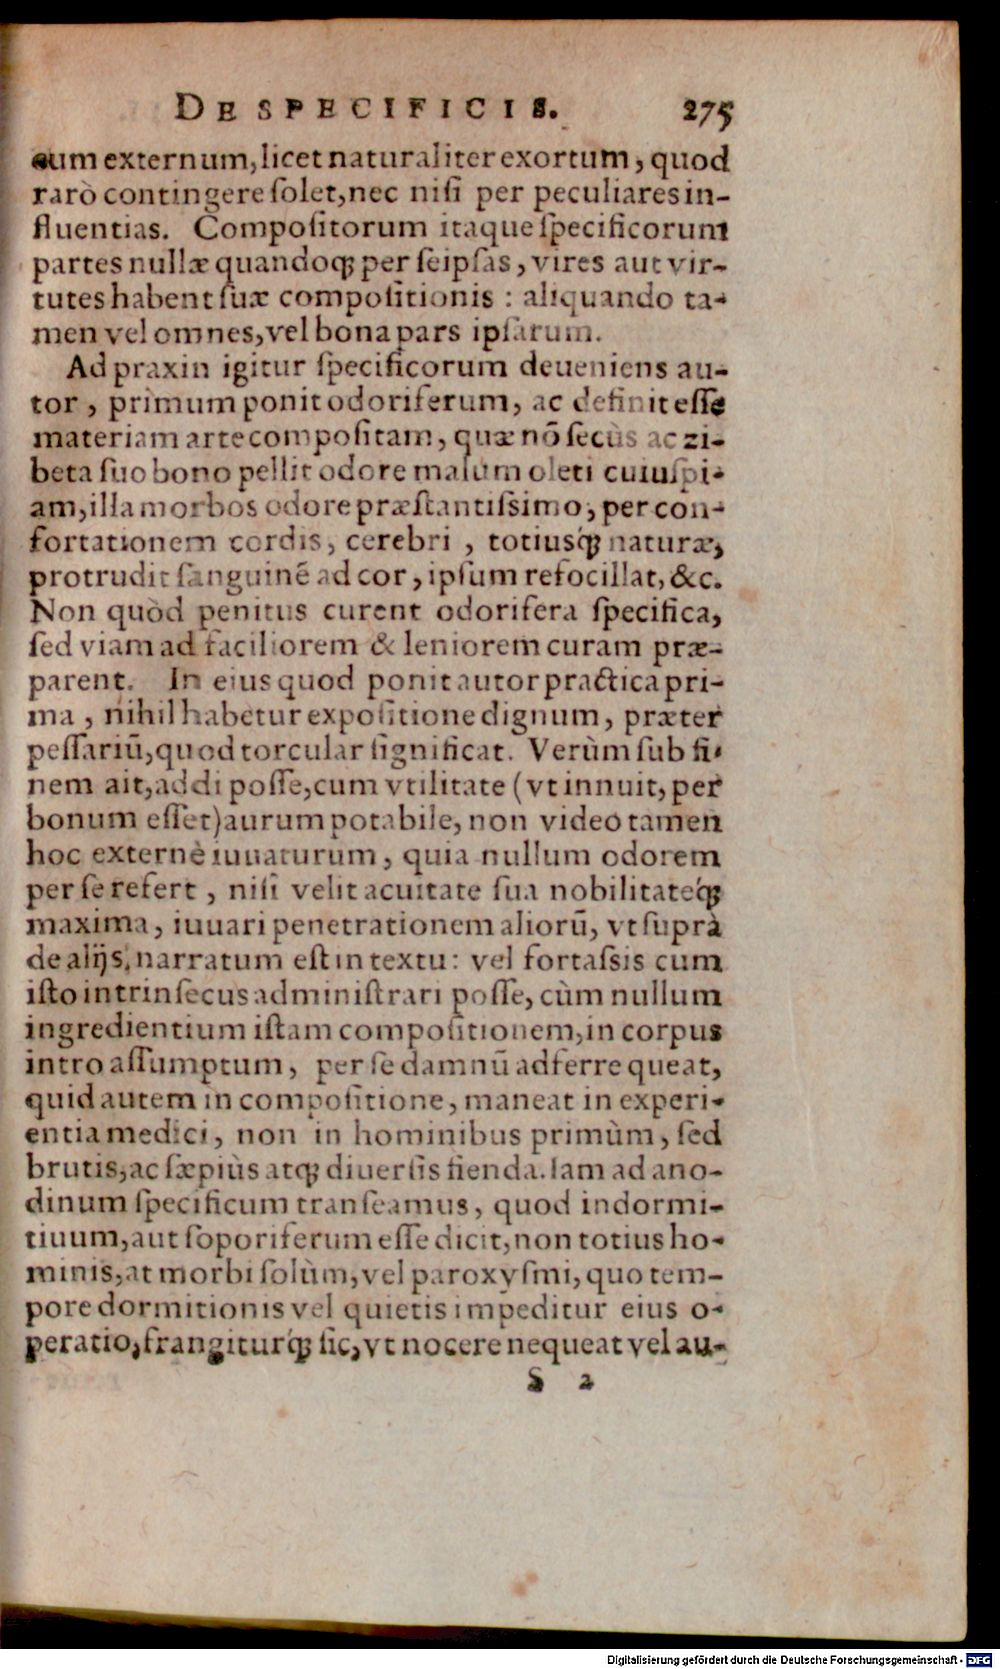 DE SPECIFICIS. 275
cum externum, licet naturaliter exortum, quod
rarò contingere ſolet, nec niſi per peculiares in-
fluentias. Compoſitorum itaque ſpecificorum
partes nullæ quandoq; per ſeipſas, vires aut vir-
tutes habent ſuæ compoſitionis : aliquando ta-
men vel omnes, vel bona pars ipſarum.
Ad praxin igitur ſpecificorum deueniens au-
tor, prìmum ponit odoriferum, ac definit eſſe
materiam arte compoſitam, quæ nō ſecùs ac zi-
beta ſuo bono pellit odore malum oleti cuiuſpi-
am, illa morbos odore præſtantiſsimo, per con-
fortationem cordis, cerebri, totiusq́; naturæ,
protrudit ſanguinē ad cor, ipſum refocillat, &c.
Non quòd penitus curent odorifera ſpecifica,
ſed viam ad faciliorem & leniorem curam præ-
parent. In eius quod ponit autor practica pri-
ma, nihil habetur expoſitione dignum, præter
peſſariū, quod torcular ſignificat. Verùm ſub fi-
nem ait, addi poſſe, cum vtilitate (vt innuit, per
bonum eſſet) aurum potabile, non video tamen
hoc externè iuuaturum, quia nullum odorem
per ſe refert, niſi velit acuitate ſua nobilitateq́;
maxima, iuuari penetrationem aliorū, vt ſuprà
de alijs, narratum eſt in textu: vel fortaſsis cum
iſto intrinſecus adminiſtrari poſſe, cùm nullum
ingredientium iſtam compoſitionem, in corpus
intro aſſumptum, per ſe damnū adferre queat,
quid autem in compoſitione, maneat in experi-
entia medici, non in hominibus primùm, ſed
brutis, ac ſæpiùs atq; diuerſis fienda. Iam ad ano-
dinum ſpecificum tranſeamus, quod indormi-
tiuum, aut ſoporiferum eſſe dicit, non totius ho-
minis, at morbi ſolùm, vel paroxyſmi, quo tem-
pore dormitionis vel quietis impeditur eius o-
peratio, frangiturq́; ſic, vt nocere nequeat vel au-
S 2
Digitalisierung gefördert durch die Deutsche Forschungsgemeinschaft - DFG